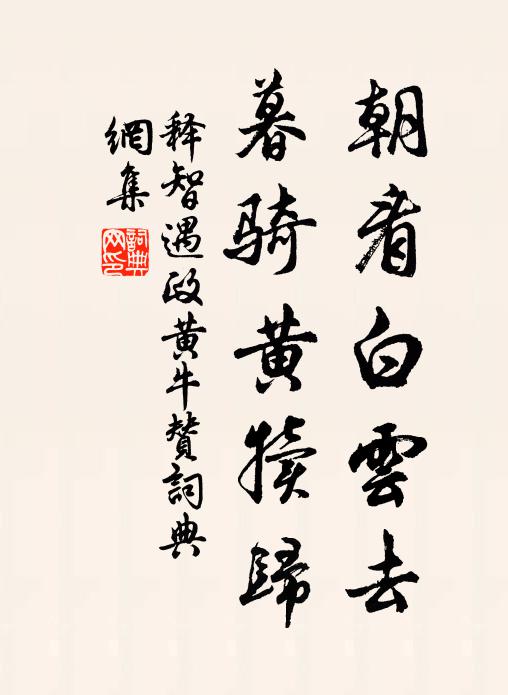 朝看白雲去
暮骑黄犢歸
释智遇政黄牛赞詞典
網集
詞典
网印